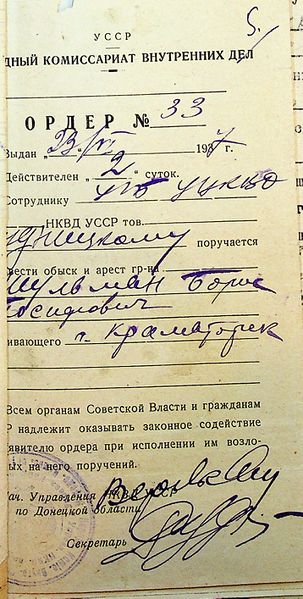 5.
УССР
ДНЫЙ КОМИССАРИАТ ВНУТРЕННИХ ДЕЛ
ОРДЕР № 33
Выдан 23/VI 1937 г.
Действителен 2 суток.
Сотруднику УГБ УНКВД
НКВД УССР тов.
дницкому поручается
вести обыск и арест гр-на
Шульман Борис
Иосифович
ивающего г. Краматорск
Всем органам Советской Власти и гражданам
Р надлежит оказывать законное содействие
явителю ордера при исполнении им возло-
ых на него поручений.
ач. Управления НКВД УССР
по Донецкой области
Секретарь